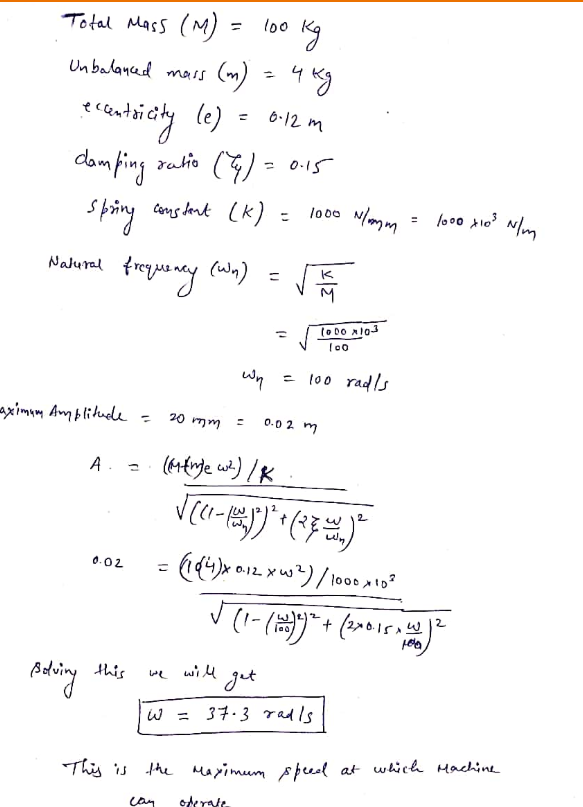 Total Mass (M) = 100 Kg
Unbalanced mass (m) = 4 Kg
eccentricity (e) = 0.12 m
damping ratio (ξ) = 0.15
Spring constant (K) = 1000 N/mm = 1000 x10³ N/m
Natural frequency (ωn) = √(K/M)
= √(1000 x10³/100)
ωn = 100 rad/s
aximum Amplitude = 20 mm = 0.02 m
A. = (M+m)e ω²)/K / √((1-(ω/ωn)²)² + (2ξ ω/ωn)²
0.02 = (104)x 0.12 x ω²)/1000 x10³ / √(1-(ω/100)²)² + (2x0.15 x ω/100)²
Solving this we will get
ω = 37.3 rad/s
This is the Maximum speed at which Machine
can operate